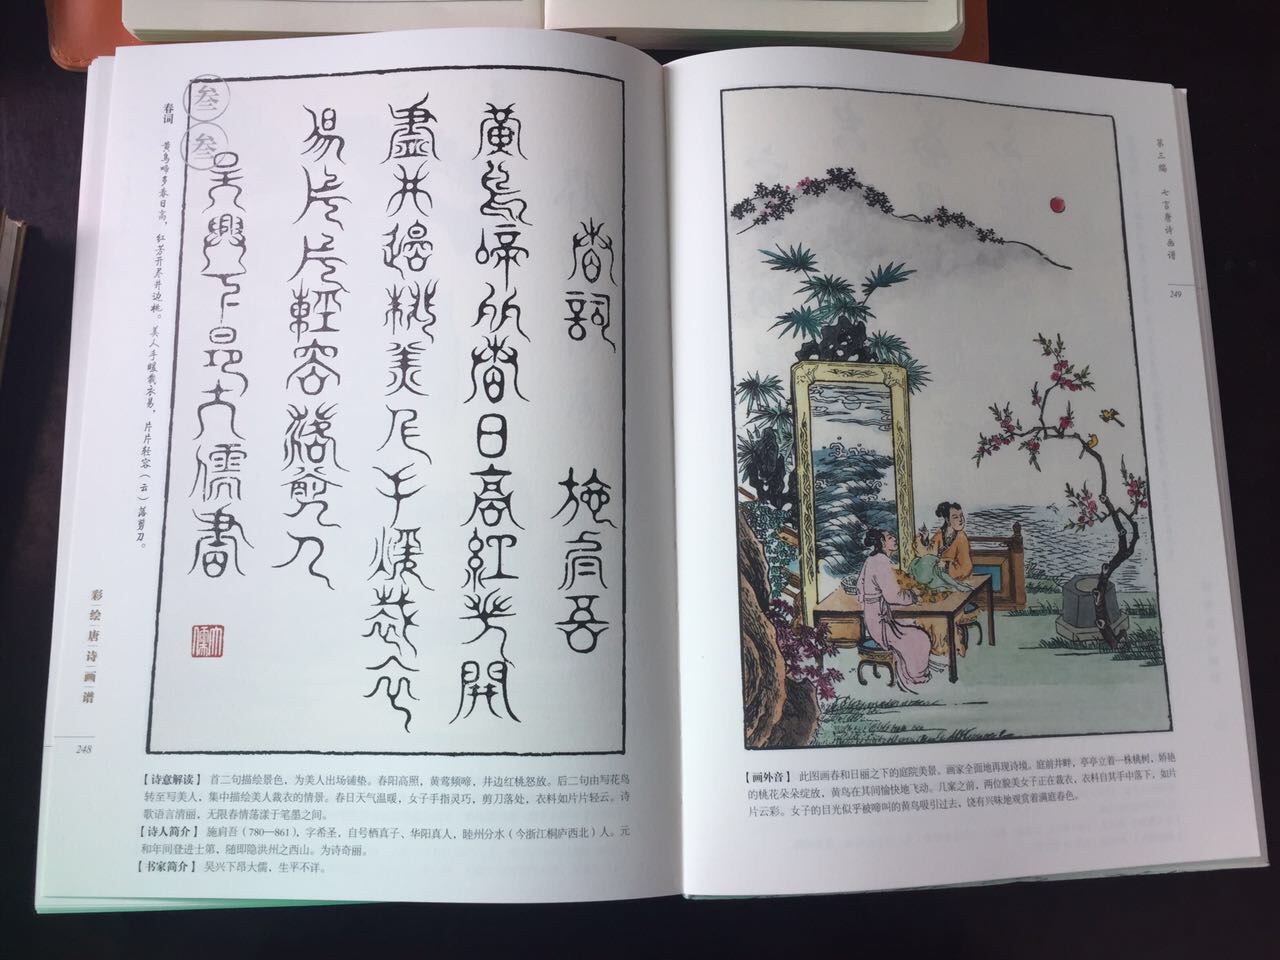 叁
叁
春词
黄鸟啼多春日高，红芳开尽井边桃。美人手暖裁衣易，片片轻容（云）落剪刀。
彩绘唐诗画谱
248
春詞 施肩吾
黃鳥啼多春日高紅芳開
盡井邊桃美人手煖裁衣
易片片輕容落剪刀
吴興下昂大儒書
大儒
【诗意解读】 首二句描绘景色，为美人出场铺垫。春阳高照，黄莺频啼，井边红桃怒放。后二句由写花鸟
转至写美人，集中描绘美人裁衣的情景。春日天气温暖，女子手指灵巧，剪刀落处，衣料如片片轻云。诗
歌语言清丽，无限春情荡漾于笔墨之间。
【诗人简介】 施肩吾（780—861），字希圣，自号栖真子、华阳真人，睦州分水（今浙江桐庐西北）人。元
和年间登进士第，随即隐洪州之西山。为诗奇丽。
【书家简介】 吴兴下昂大儒，生平不详。
第三编 七言唐诗画谱
249
【画外音】 此图画春和日丽之下的庭院美景。画家全面地再现诗境。庭前井畔，亭亭立着一株桃树，娇艳
的桃花朵朵绽放，黄鸟在其间愉快地飞动。几案之前，两位貌美女子正在裁衣，衣料自其手中落下，如片
片云彩。女子的目光似乎被啼叫的黄鸟吸引过去，饶有兴味地观赏着满庭春色。